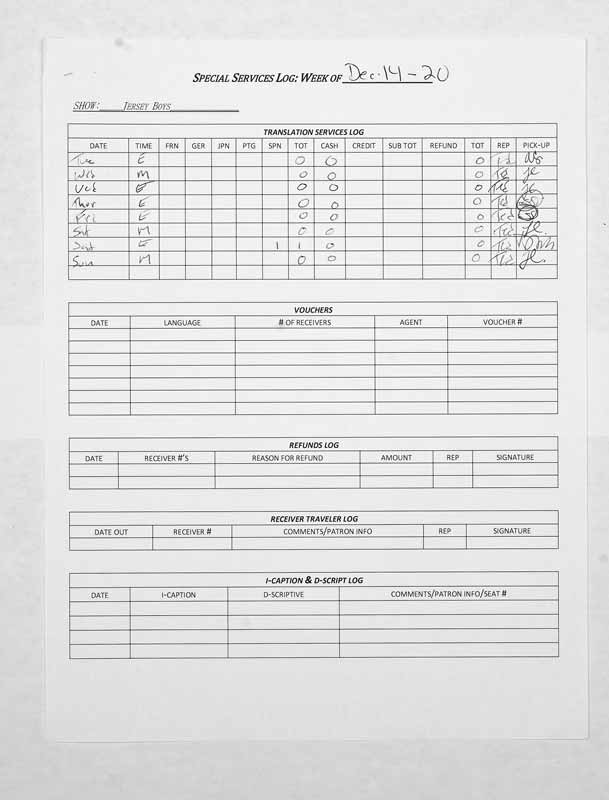 SPECIAL SERVICES LOG: WEEK OF Dec. 14 - 20
SHOW: JERSEY BOYS
TRANSLATION SERVICES LOG
DATE TIME FRN GER JPN PTG SPN TOT CASH CREDIT SUB TOT REFUND TOT REP PICK-UP
Tue E 0 0 0 Td
Wed M 0 0 0 Td Jl
Wed E 0 0 0 Td Jl
Thur E 0 0 0 Td
Fri E 0 0 0 Ted
Sat M 0 0 0 Ted Jl.
Sat E 1 1 0 0 Td
Sun M 0 0 0 Td Jl.
VOUCHERS
DATE LANGUAGE # OF RECEIVERS AGENT VOUCHER #
REFUNDS LOG
DATE RECEIVER #'S REASON FOR REFUND AMOUNT REP SIGNATURE
RECEIVER TRAVELER LOG
DATE OUT RECEIVER # COMMENTS/PATRON INFO REP SIGNATURE
I-CAPTION & D-SCRIPT LOG
DATE I-CAPTION D-SCRIPTIVE COMMENTS/PATRON INFO/SEAT #